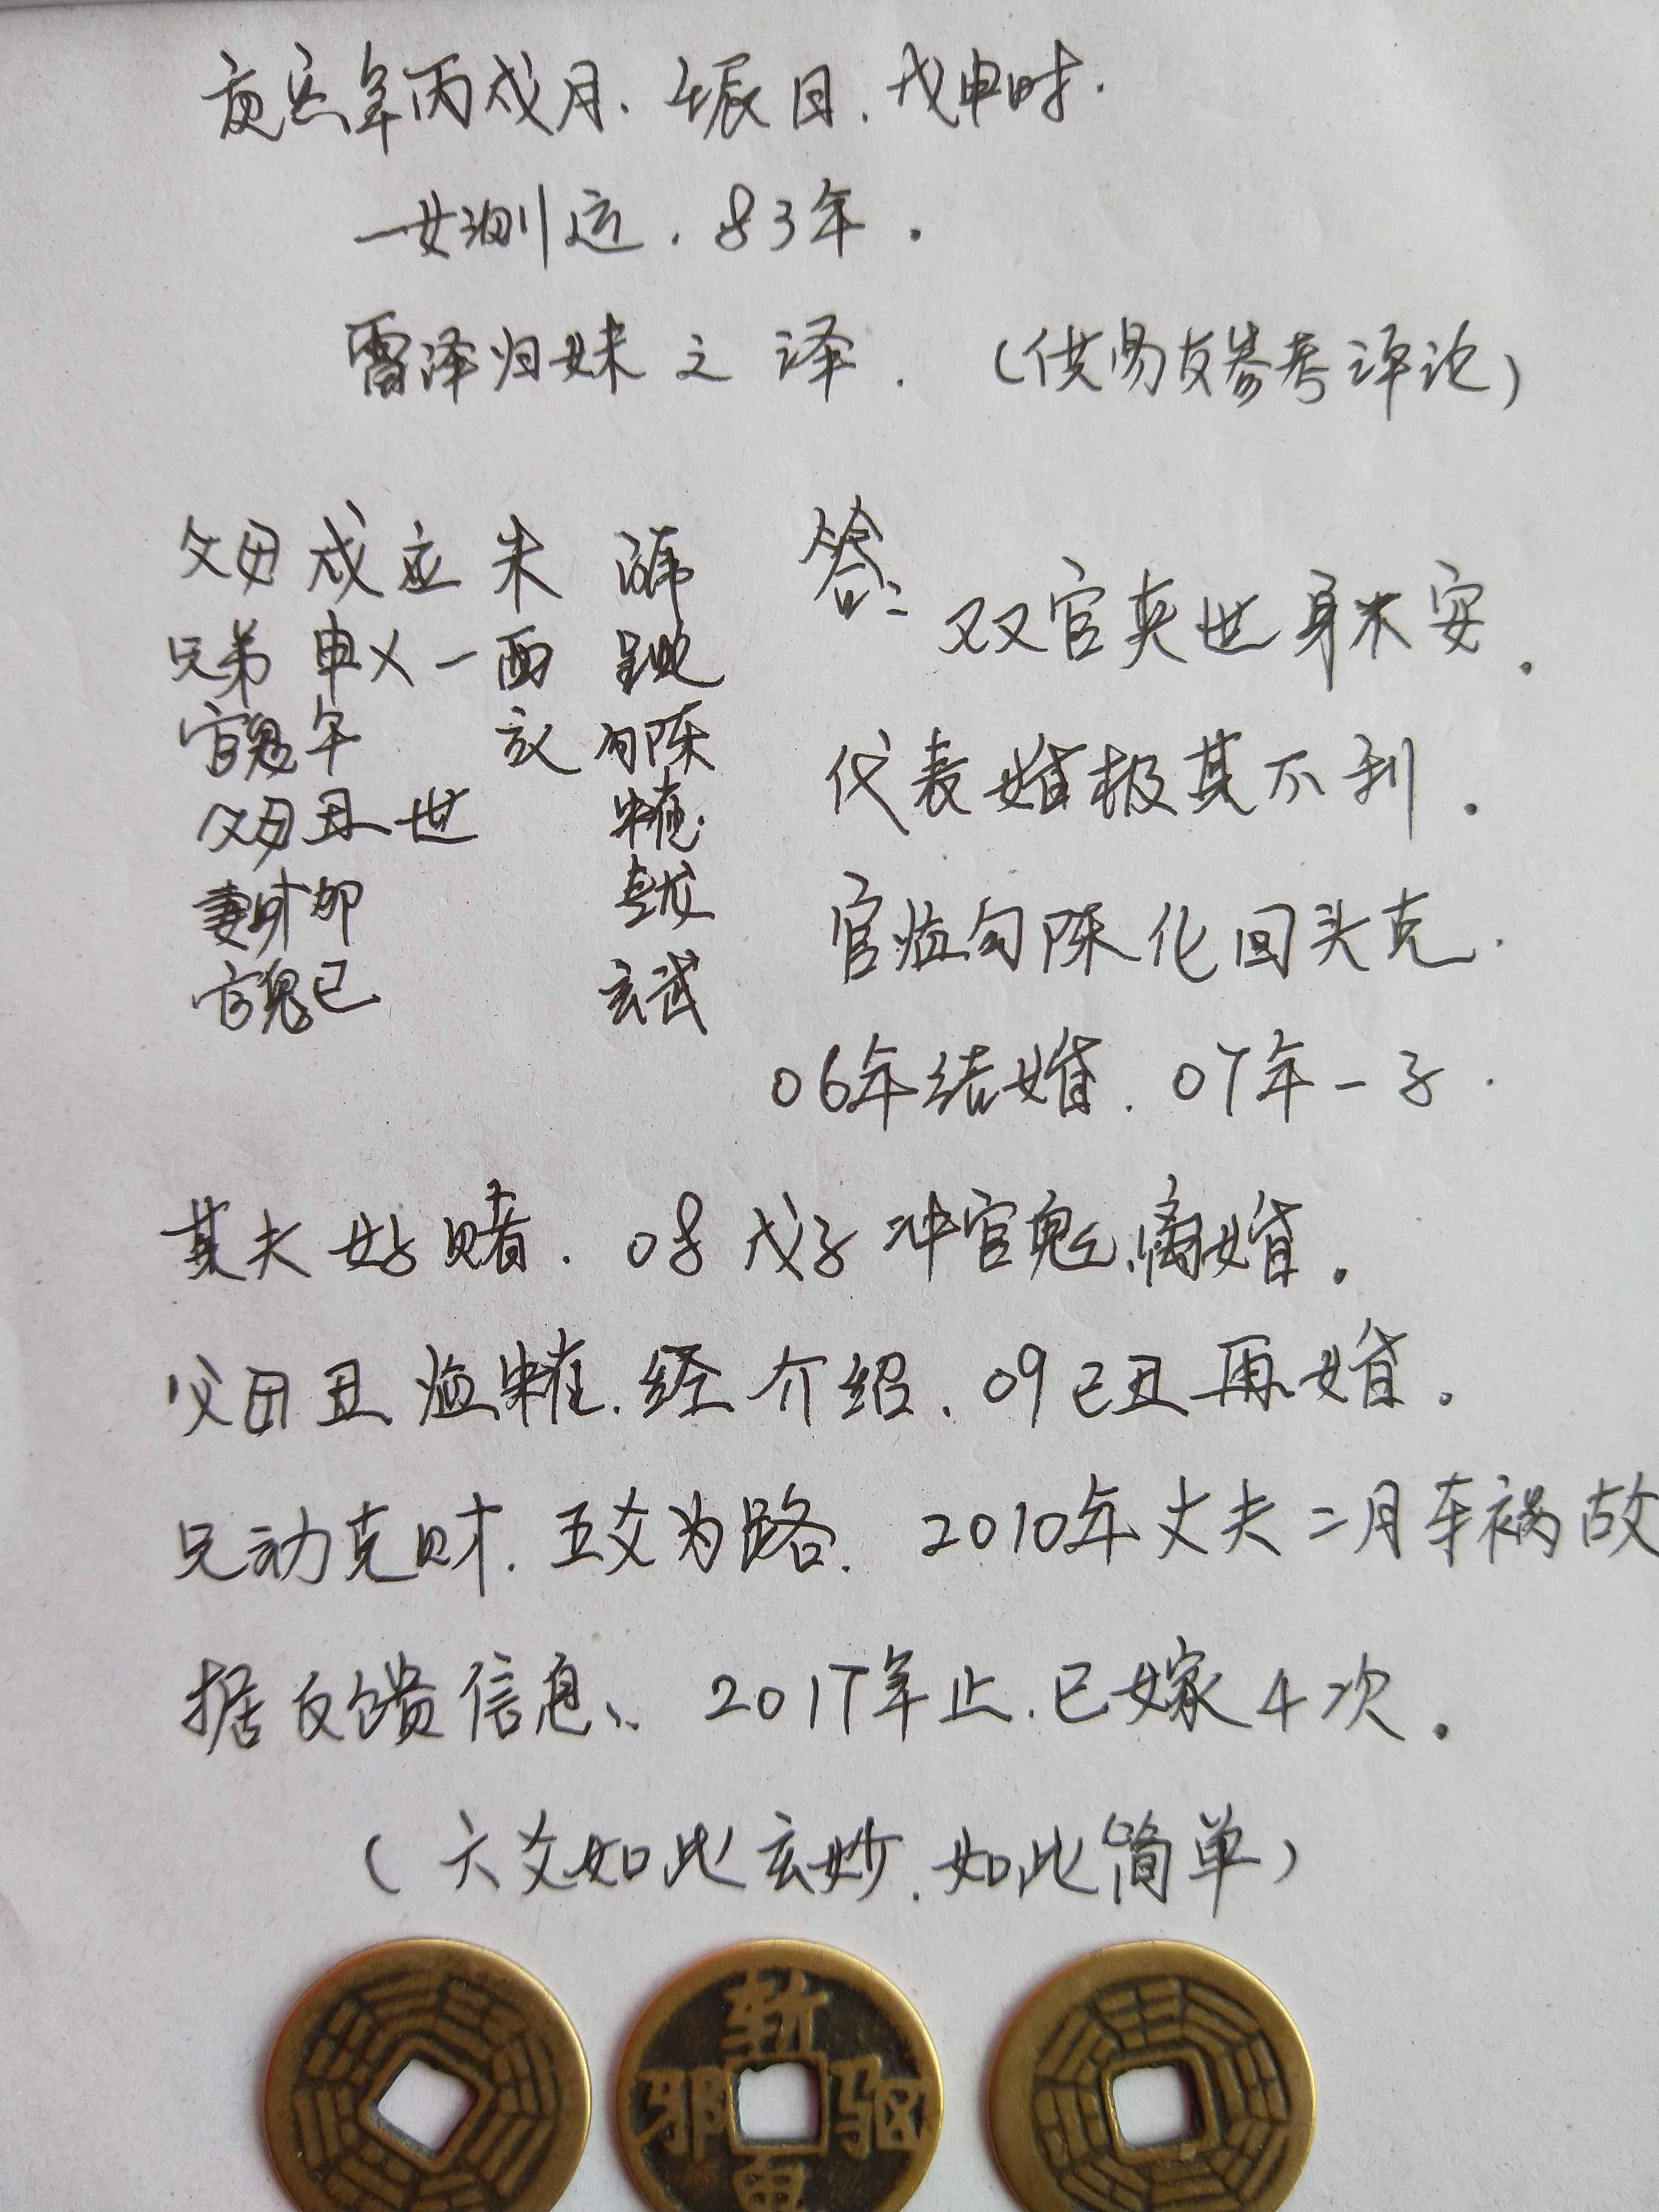 庚寅年丙戌月、壬辰日、戊申时.
一女测运. 83年.
雷泽归妹之泽. (供易友参考评论)
父母戌应 未
兄弟 申乂一酉
官鬼午 亥 勾陈
父母丑一世 朱雀
妻财卯 青龙
官鬼巳 玄武
答:
双官夹世身不安.
代表婚极其不利.
官临勾陈化回头克.
06年结婚. 07年一子.
其夫好赌. 08戊子冲官鬼、离婚.
父母丑临朱雀.经介绍、09己丑再婚.
兄动克财. 五爻为路. 2010年丈夫二月车祸故
据反馈信息、2017年止.已嫁4次.
(六爻如此玄妙.如此简单)
斩
邪 驱